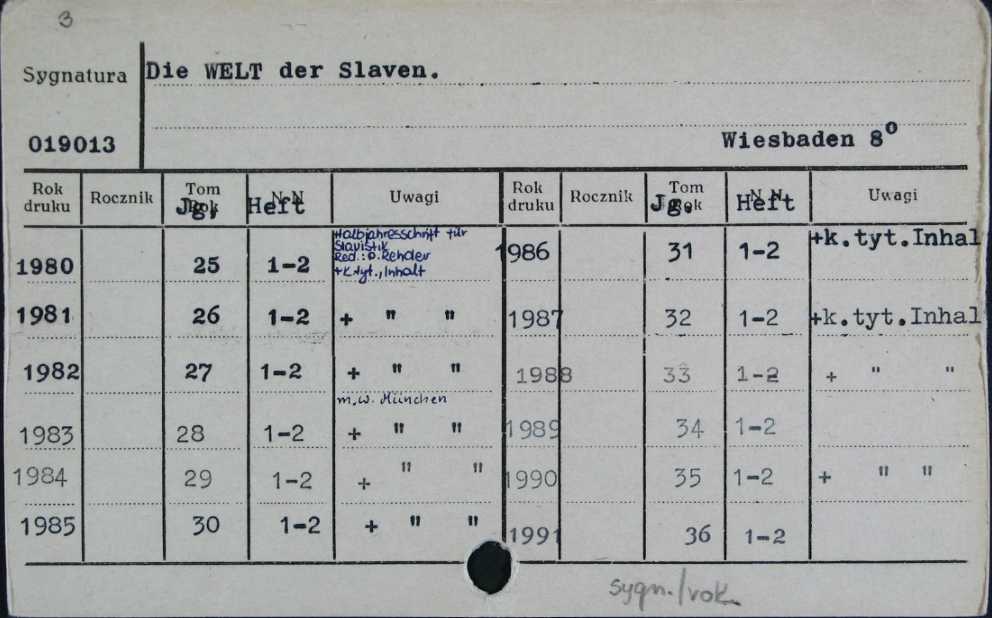 3
Sygnatura Die WELT der Slaven.
019013 Wiesbaden 8°
Rok druku Rocznik Tom Rok Jg. N-N Heft Uwagi Rok druku Rocznik Tom Rok Jg. N-N Heft Uwagi
Halbjahresschrift für
Slavistik
Red.: P. Rehder
1980 25 1-2 +k.tyt., Inhalt 1986 31 1-2 +k.tyt.Inhal
1981 26 1-2 + " " 1987 32 1-2 +k.tyt.Inhal
1982 27 1-2 + " " 1988 33 1-2 + " "
m.w. München
1983 28 1-2 + " " 1989 34 1-2
1984 29 1-2 + " " 1990 35 1-2 + " "
1985 30 1-2 + " " 1991 36 1-2
sygn./rok